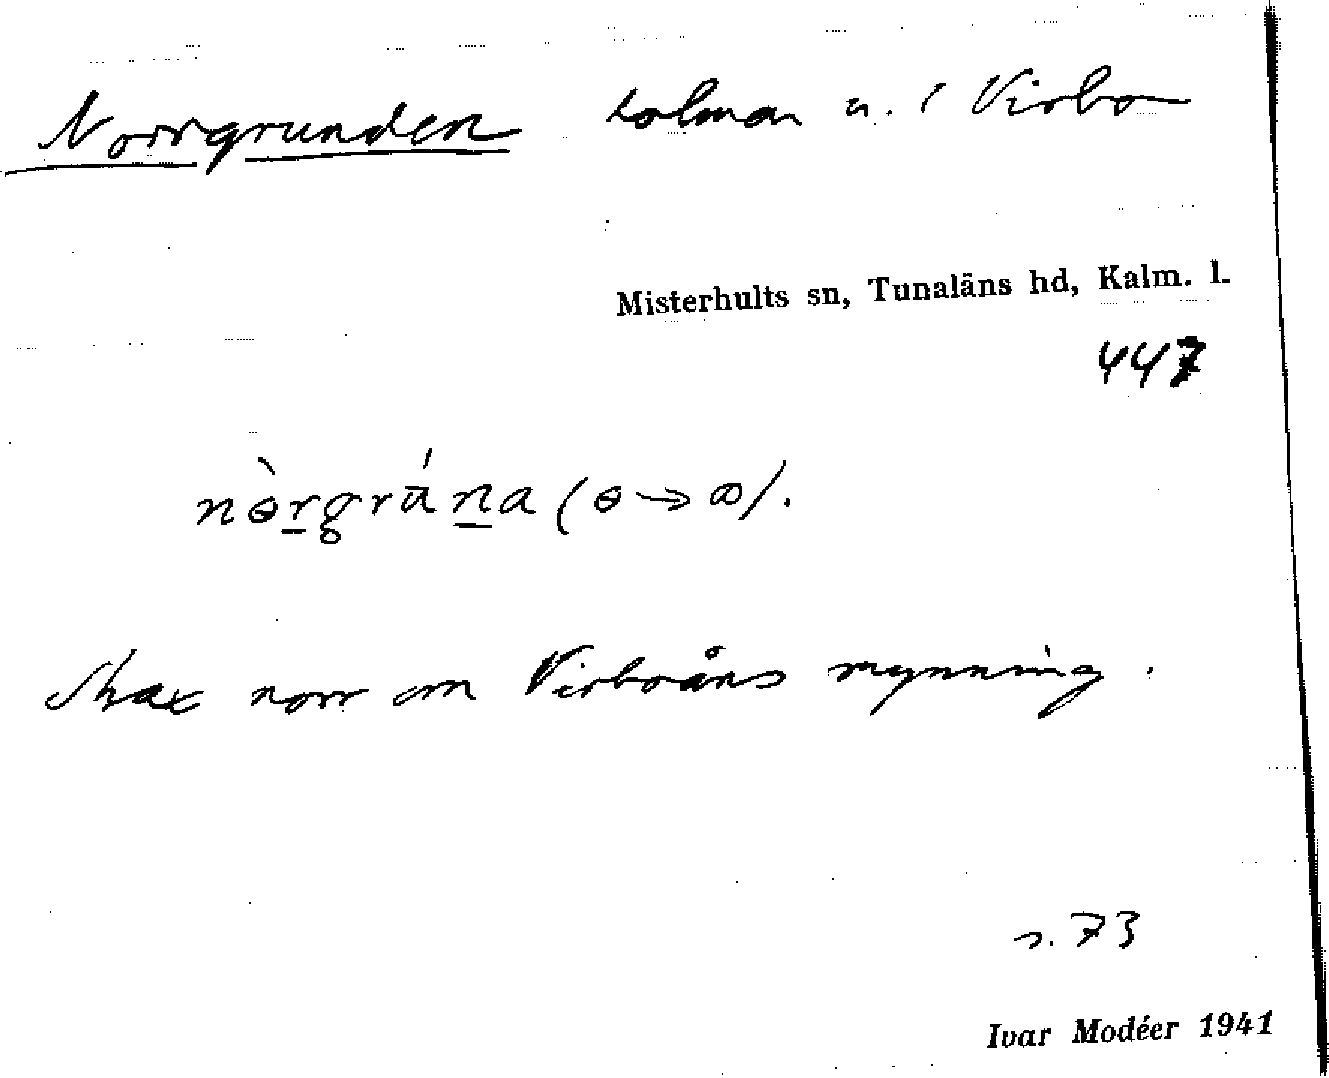 Norrgrunden holmar u. / Virbo
Misterhults sn, Tunaläns hd, Kalm. l.
447
nɵ̀rgrána (ɵ → ꝏ).
strax norr om Virboåns mynning.
s. 73
Ivar Modéer 1941